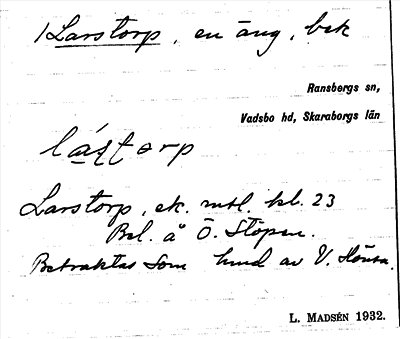 1 Larstorp, en äng, bek
Ransbergs sn,
Vadsbo hd, Skaraborgs län
lás̨torp
Larstorp, ek. mtl. kl. 23
Bel. å Ö. Stöpen.
Betraktas som hmd av V. Hönsa.
L. MADSÉN 1932.